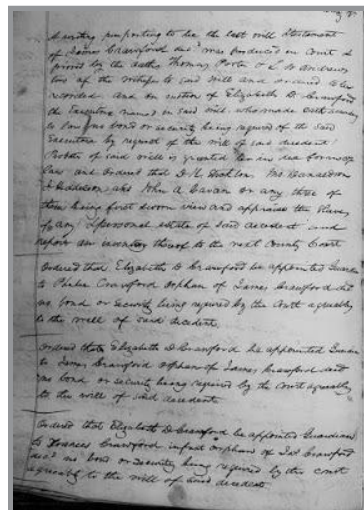 A writing purporting to be the last will & testament
of James Crawford decd was produced in Court &
proved by the oaths Thomas Porter & Andrews
two of the witnesses to said will and ordered to be
recorded. And on motion of Elizabeth D Crawford
the Executrix named in said will who made oath
to law no bond or security being required of the said
Executrix by request of the will of said decedent
Probate of said will is granted her in due form of
law and ordered that Donaldson
and John A Cavan or any three of
them being first sworn view and appraise the slaves
if any & personal estate of said decedent and
report an inventory thereof to the next County Court
Ordered that Elizabeth D Crawford be appointed Guardian
to Crawford orphan of James Crawford decd
no bond or security being required by the Court agreeably
to the will of said decedent.
Ordered that Elizabeth D Crawford be appointed Guardian
to James Crawford orphan of James Crawford decd
no bond or security being required by the Court agreeably
to the will of said decedent
Ordered that Elizabeth D Crawford be appointed Guardian
to Frances Crawford infant orphans of Jas Crawford
decd no bond or security being required by this court
agreeably to the will of said decedent